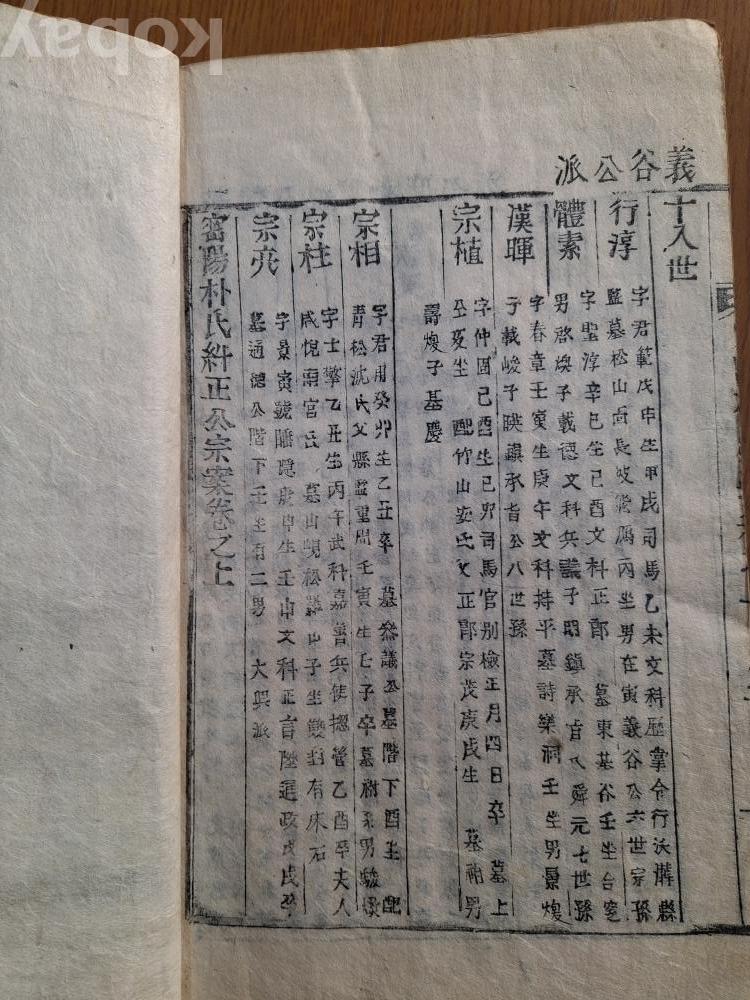 Kobay
義谷公派
十八世
行淳
字君範戊申生甲戌司馬乙未文科歷掌令行沃溝縣
監墓松山面長岐丙坐男在寅義谷公六世宗孫
體素
字聖淳辛巳生己酉文科正郎 墓東基谷壬坐台
男啓煥子載德文科兵議子昭鎮承旨公舜元七世孫
漢暉
字春章壬寅生庚午文科持平墓詩樂洞壬坐男景煥
子載峻子映鎮承旨公八世孫
宗植
字仲固己酉生己卯司馬官別檢正月四日卒 墓上
公夏坐 配竹山安氏父正郎宗茂庚戌生 墓祔男
壽煥子基慶
宗相
字君用癸卯生乙丑卒 墓參議公墓階下酉坐 配
青松沈氏父縣監重周壬寅生壬子卒墓祔系男駿煥
宗柱
字士擎乙丑生丙午武科嘉善兵使摠管乙酉卒夫人
咸悅南宮氏 墓山峴松子坐雙封有床石
宗亮
字景寅號隱庚申生壬申文科正言陞通政戊戌卒
墓通德公階下壬坐有二男 大興派
密陽朴氏糾正公宗案卷之上